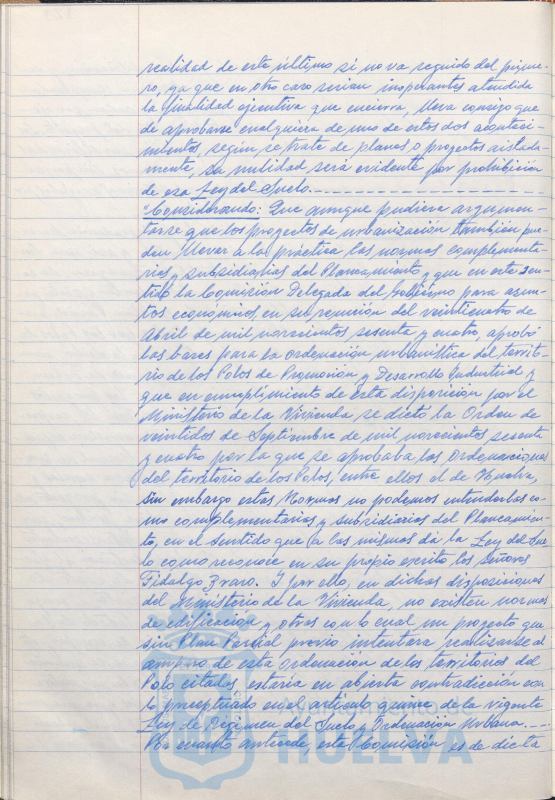 realidad de este último si no va seguido del prime-
ro, ya que en otro caso serian inoperantes atendida
la finalidad ejecutiva que encierra, lleva consigo que
de aprobarse cualquiera de uno de estos dos aconteci-
mientos, según se trate de planes o proyectos aislada-
mente, su nulidad será evidente por prohibición
de esa Ley del Suelo.
"Considerando: Que aunque pudiera argumen-
tarse que los proyectos de urbanización tambien pue-
den llevar a la práctica las normas complementa-
rias y subsidiarias del Planeamiento y que en este sen-
tido la Comisión Delegada del Gobierno para asun-
tos economicos en su reunión del veinticuatro de
Abril de mil novecientos sesenta y cuatro, aprobó
las bases para la ordenación urbanística del territo-
rio de los Polos de Promoción y Desarrollo Industrial y
que en cumplimiento de esta disposición por el
Ministerio de la Vivienda se dictó la Orden de
veintidos de Septiembre de mil novecientos sesenta
y cuatro por la que se aprobaba las Ordenaciones
del territorio de los Polos, entre ellos el de Huelva,
sin embargo estas Normas no podemos entenderlas co-
mo complementarias y subsidiarias del Planeamien-
to, en el sentido que a las mismas da la Ley del Sue-
lo como reconoce en su propio escrito los Señores
Fidalgo Bravo. Y por ello, en dichas disposiciones
del Ministerio de la Vivienda, no existen normas
de edificación y otras con lo cual un proyecto que
sin Plan Parcial previo intentara realizarse al
amparo de esta ordenación de los territorios del
Polo citados estaría en abierta contradicción con
lo preceptuado en el artículo quince de la vigente
Ley de Régimen del Suelo y Ordenación Urbana.
Por cuanto antecede, esta Comisión es de dicta
HUELVA